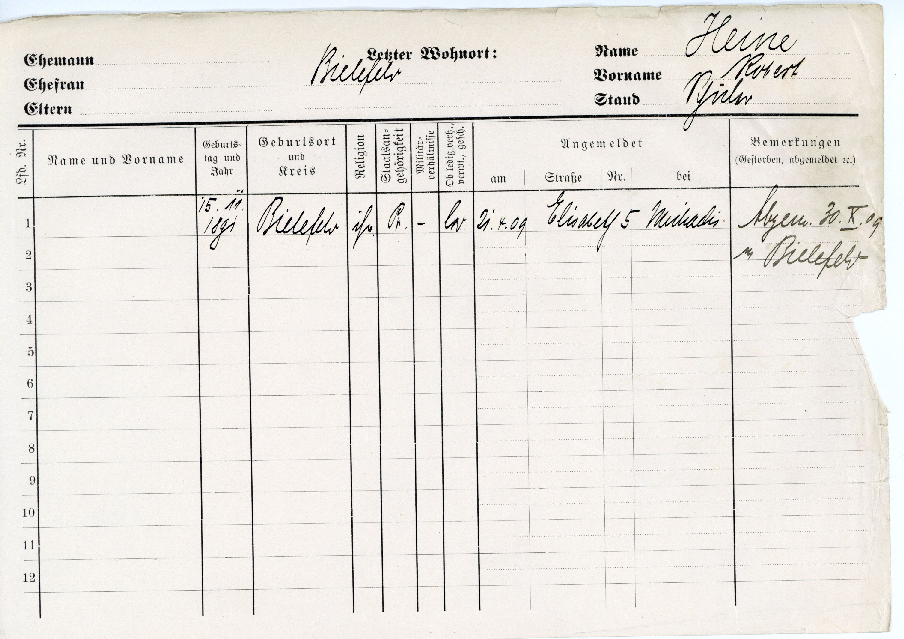 Ehemann
Ehefrau
Eltern
Letzter Wohnort:
Bielefeld
Name Heine
Vorname Robert
Stand Schüler
Lfd. Nr.
Name und Vorname
Geburts-
tag und
Jahr
Geburtsort
und
Kreis
Religion
Staatsan-
gehörigkeit
Militär-
verhältnisse
Ob ledig, verh.,
verwit., gesch.
Angemeldet
am Straße Nr. bei
Bemerkungen
(Gestorben, abgemeldet ec.)
1 15. 11. Bielefeld isr. Pr. - led 21.4.09 Elisabeth 5 Michaelis Abgem. 30.X.09
1891
2 Bielefeld
3
4
5
6
7
8
9
10
11
12